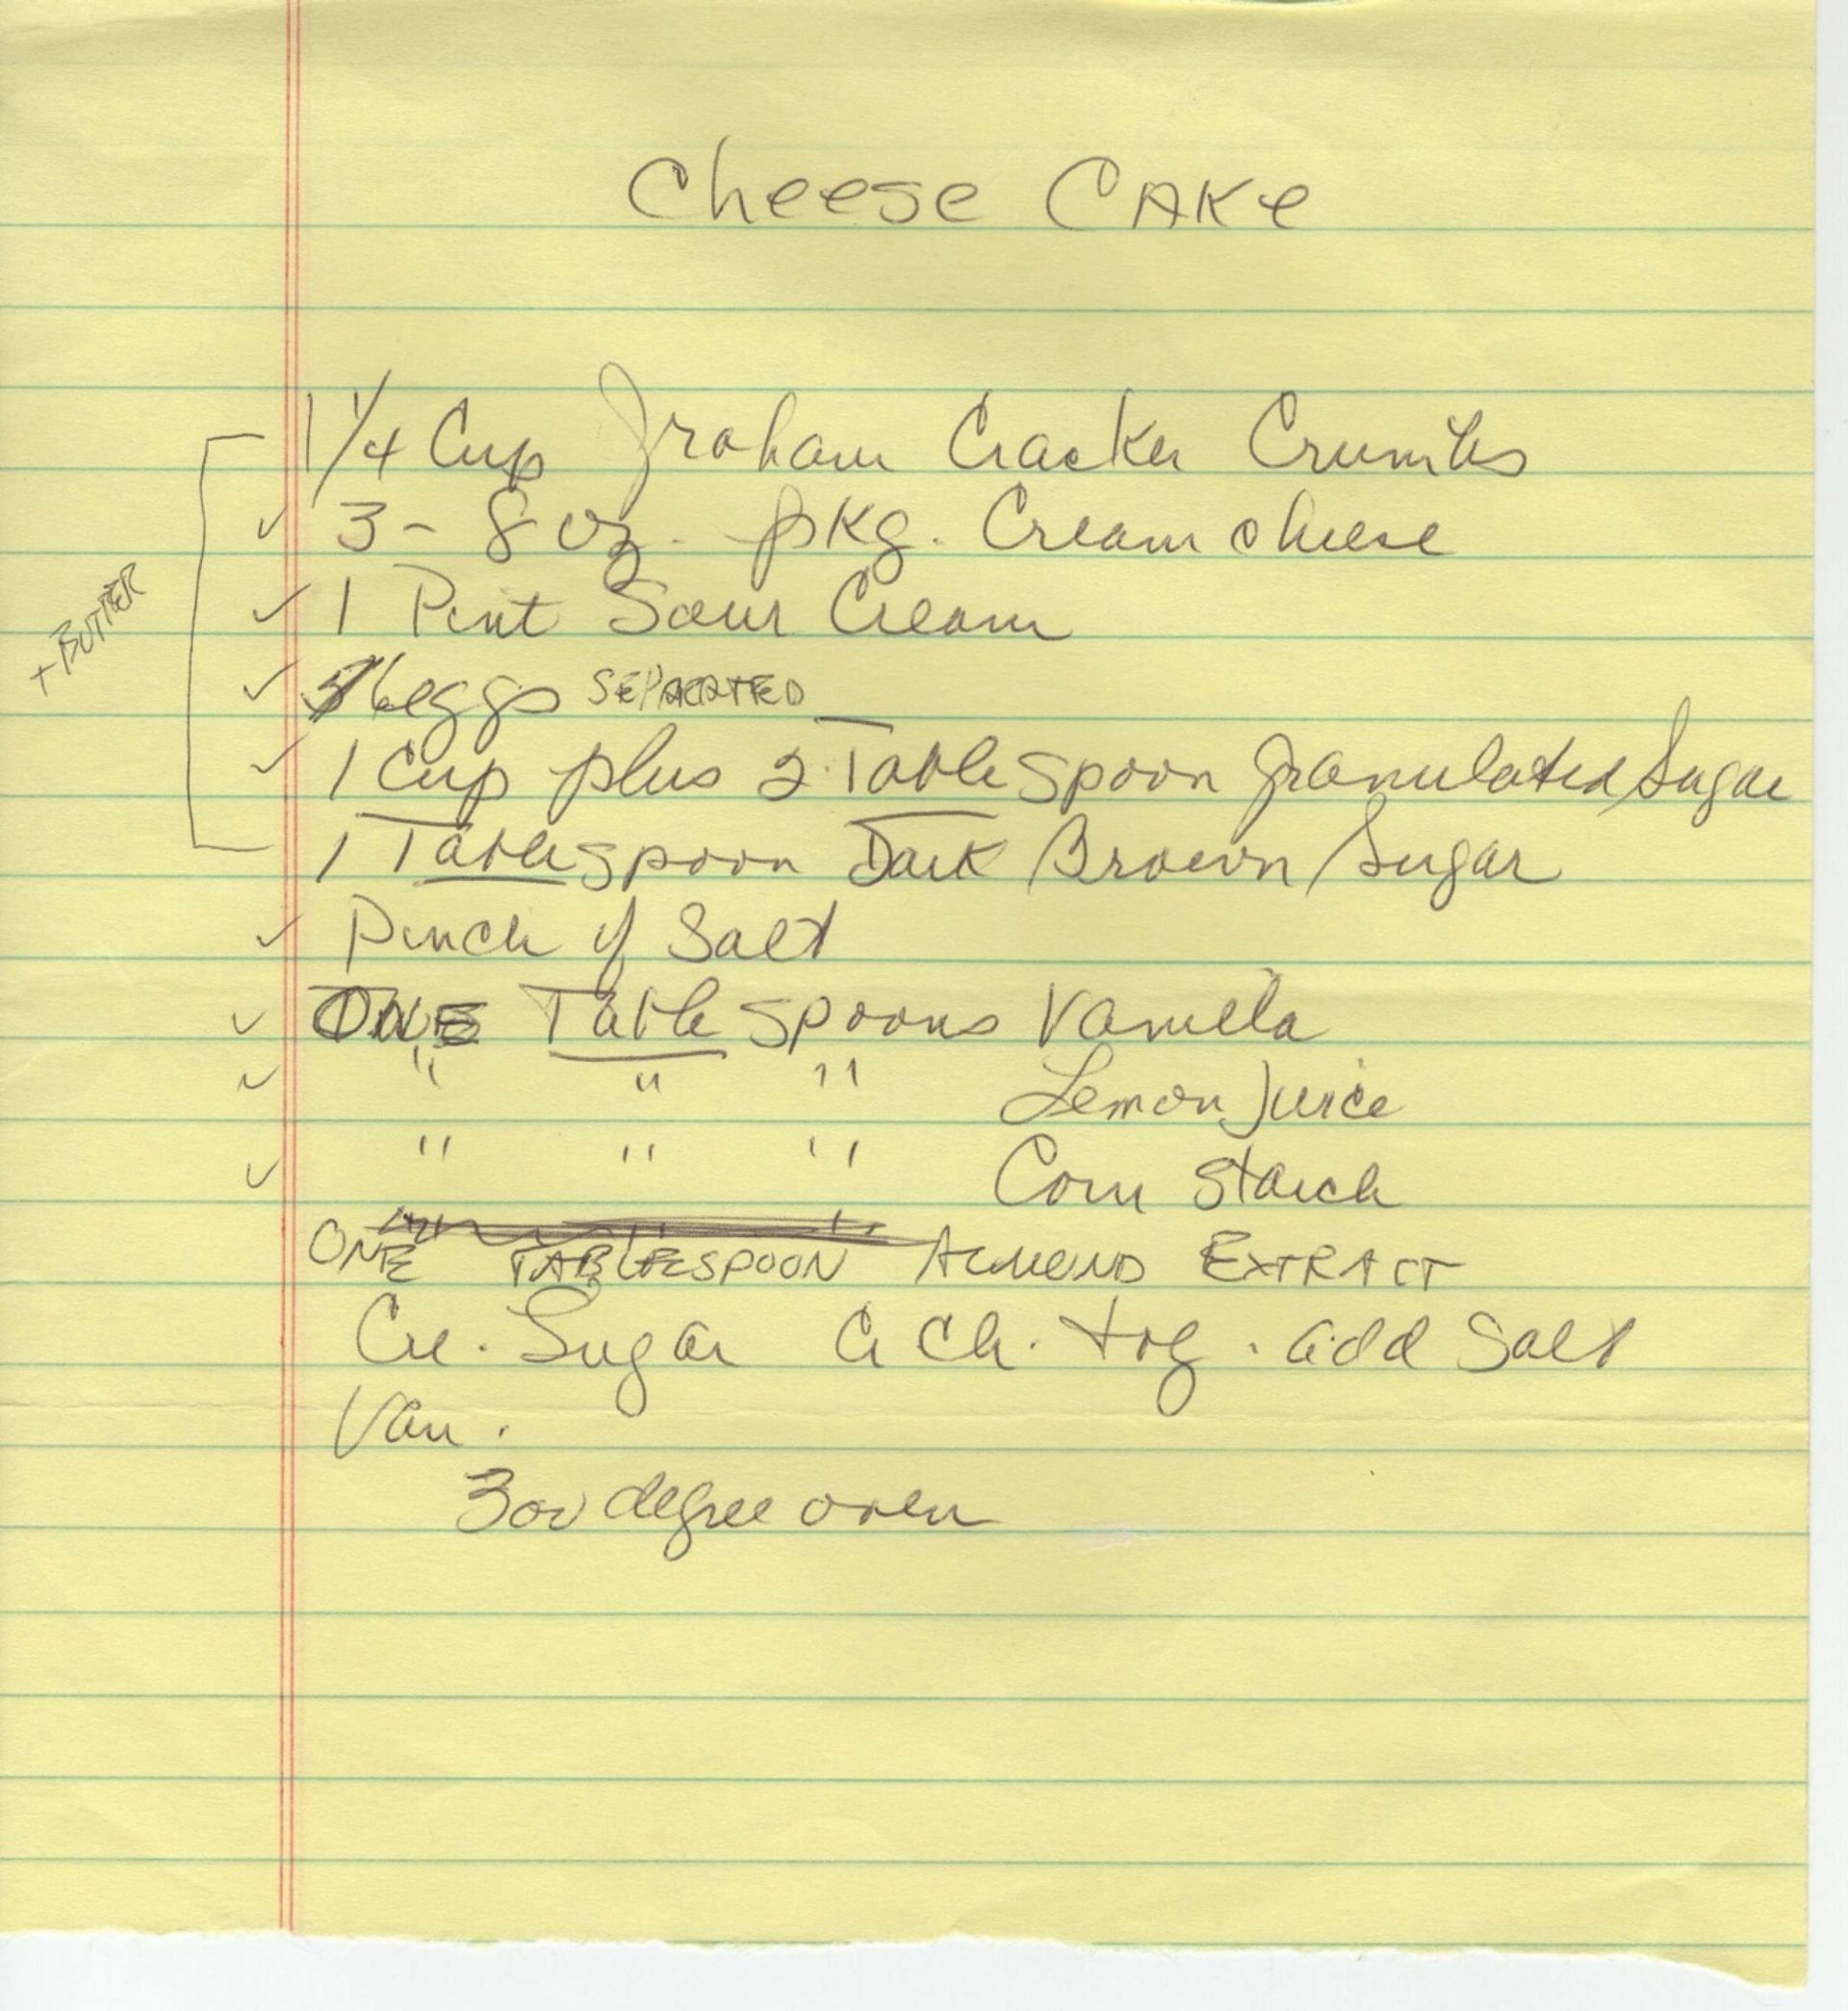 Cheese CAKe
1 1/4 Cup Graham Cracker Crumbs
3 - 8 oz. pkg. Cream cheese
1 Pint Sour Cream
+ BUTTER
6 eggs SEPARATED
1 Cup plus 2 Tablespoon granulated Sugar
1 Tablespoon Dark Brown Sugar
Pinch of Salt
ONE Tablespoons Vanilla
" " " Lemon Juice
" " " Corn Starch
ONE TABLESPOON ALMOND EXTRACT
Cre. Sugar Ch. tog. add Salt
Van.
300 degree oven